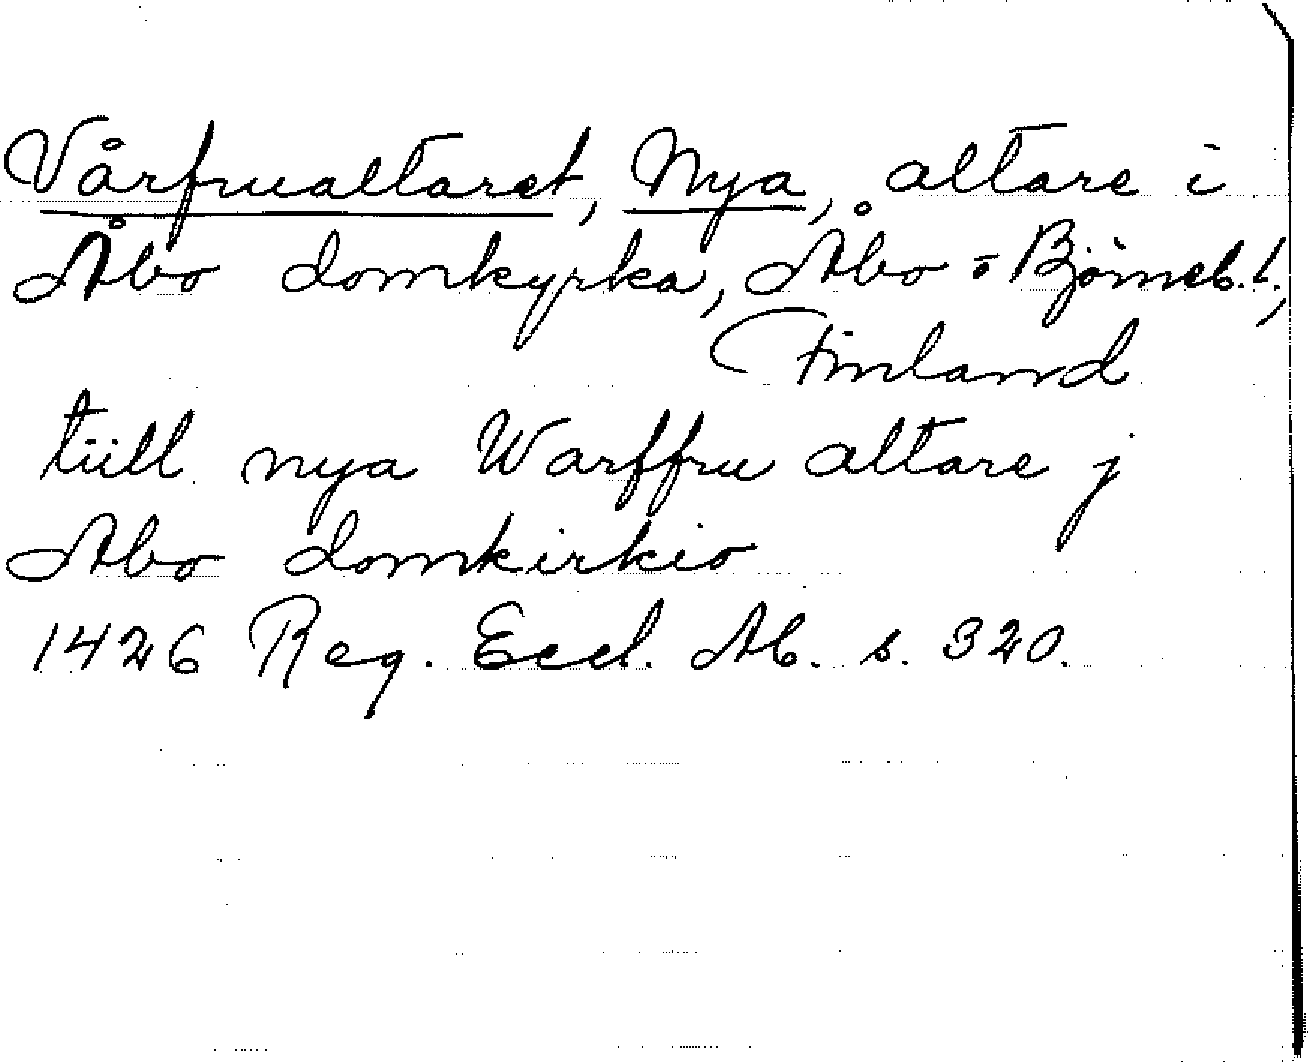 Vårfrualtaret, Nya, altare i
Åbo domkyrka, Åbo o Björneb. l.,
Finland
tiill nya Warffru altare j
Abo domkirkio
1426 Reg. Eccl. Ab. s. 320.